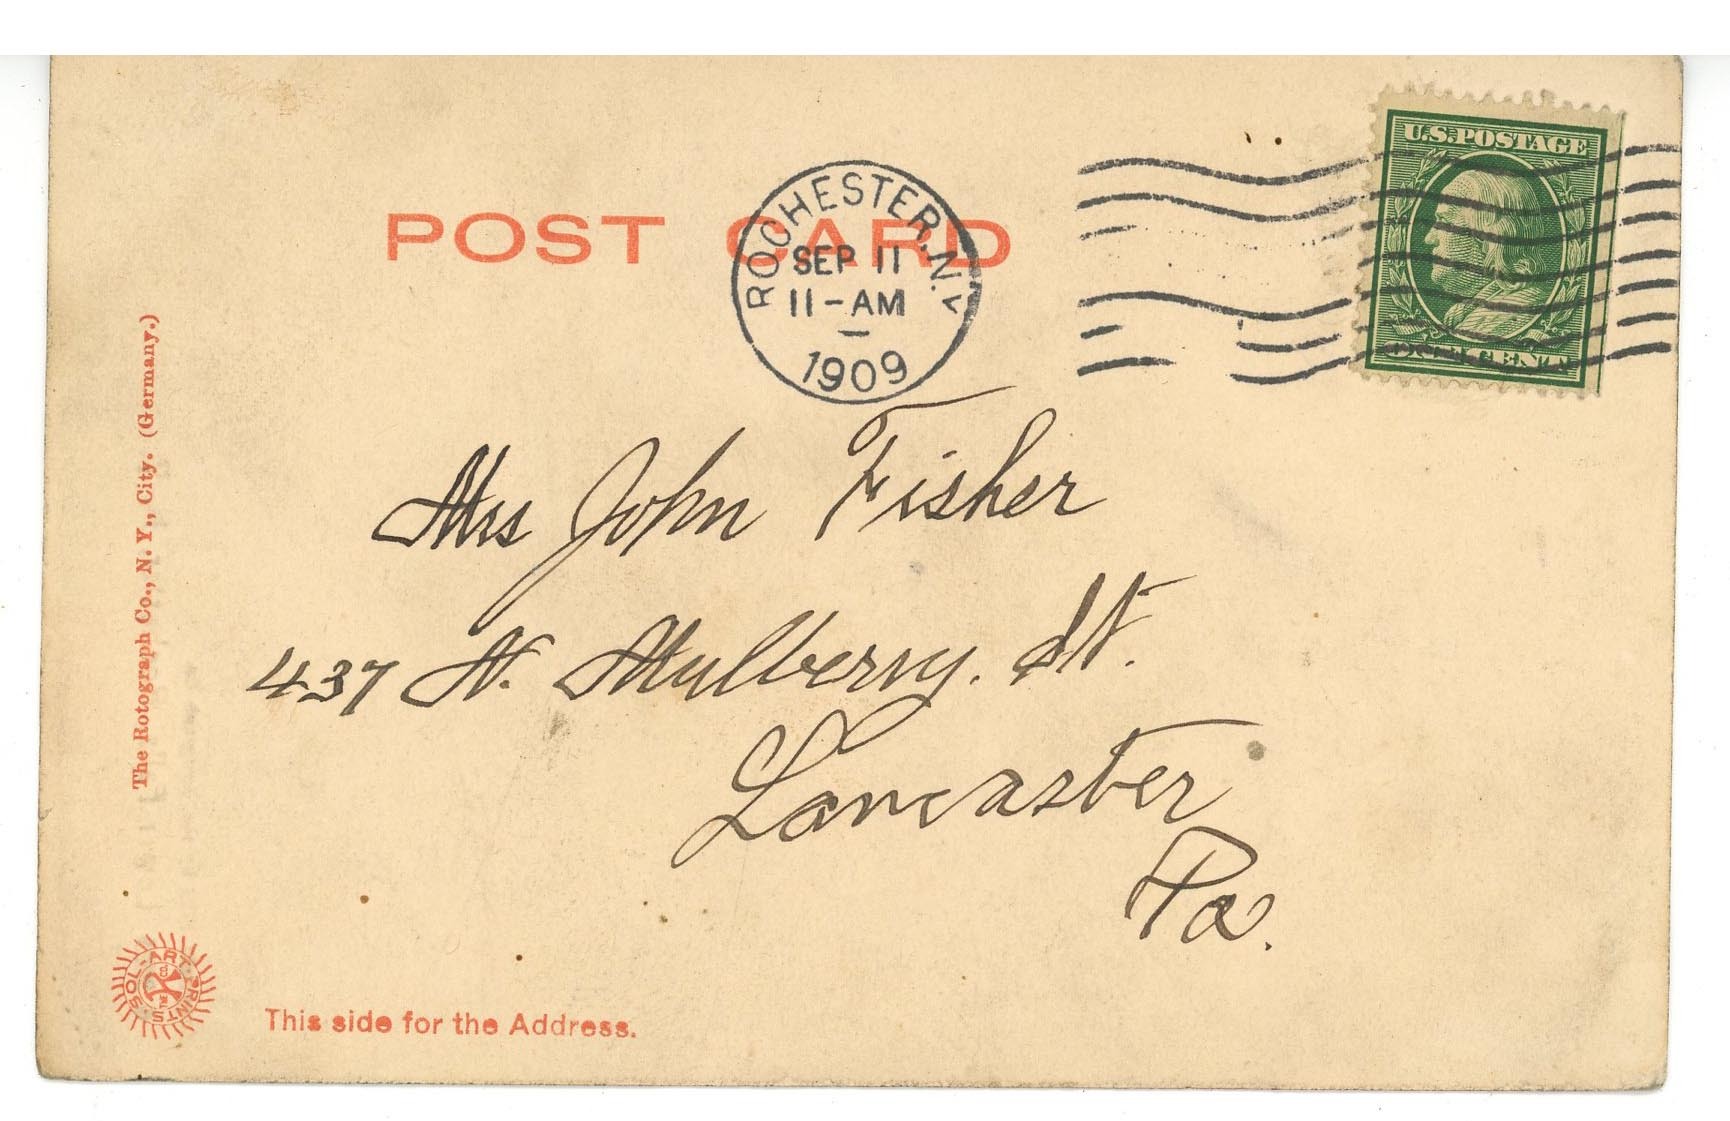 POST CARD
ROCHESTER, N.Y.
SEP 11
11-AM
1909
U.S. POSTAGE
Mrs John Fisher
437 N. Mulberry. St.
Lancaster
Pa.
The Rotograph Co., N. Y., City. (Germany.)
SOL-ART PRINTS
This side for the Address.